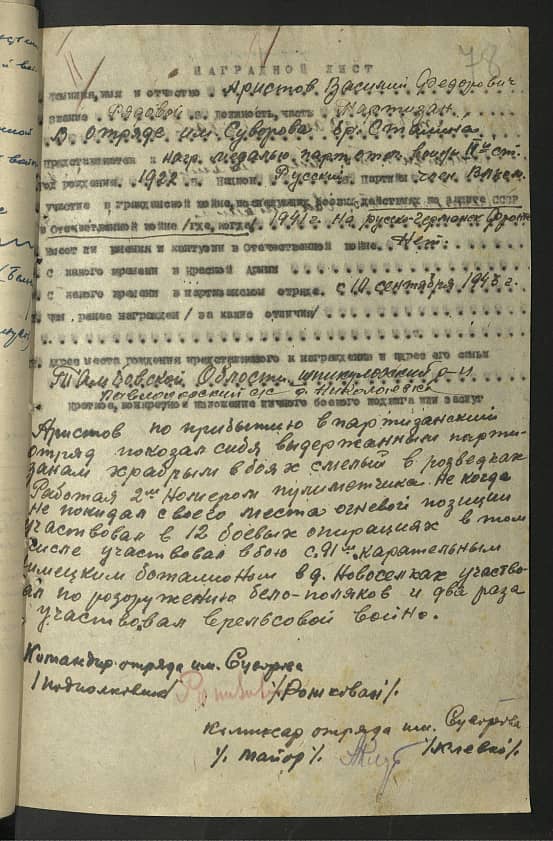 78
НАГРАДНОЙ ЛИСТ
Фамилия, имя и отчество Аристов Василий Федорович
звание Рядовой должность, часть Партизан
В отряде им. Суворова бр. Сталина
Представляется к нагр. медалью парт. отеч. войны IIй ст.
год рождения. 1922 Национ. Русский Партийн член Влксм
участие в гражданской войне, последующих боевых действиях по защите СССР
в Отечественной войне /где, когда/ 1941 г. На русско-германск фронте
имеет ли ранения и контузии в Отечественной войне. Нет.
с какого времени в Красной Армии
с какого времени в партизанском отряде. с 10 сентября 1943 г.
чем ранее награжден / за какие отличия/
адрес места рождения представляемого к награждению и адрес его семьи
Тамбовской Области р-н
с/с д. Николаевка
Краткое, конкретное изложение личного боевого подвига или заслуг
Аристов по прибытию в партизанский
отряд показал себя выдержанным парти-
заном храбрым в боях смелый в розведках
Работая 2ым номером пулиметчика. Не когда
не покидал своего места огневой позиции
участвовал в 12 боевых операциях в том
числе участвовал в бою с 91ым карательным
немецким баталионом в д. Новоселках участво-
вал по розоружению бело-поляков и два раза
участвовал в рельсовой войно.
Командир отряда им. Суворова
/подполковник/ /Рошкован/.
Комиссар отряда им. Суворова
/. майор /. /Клевко/.